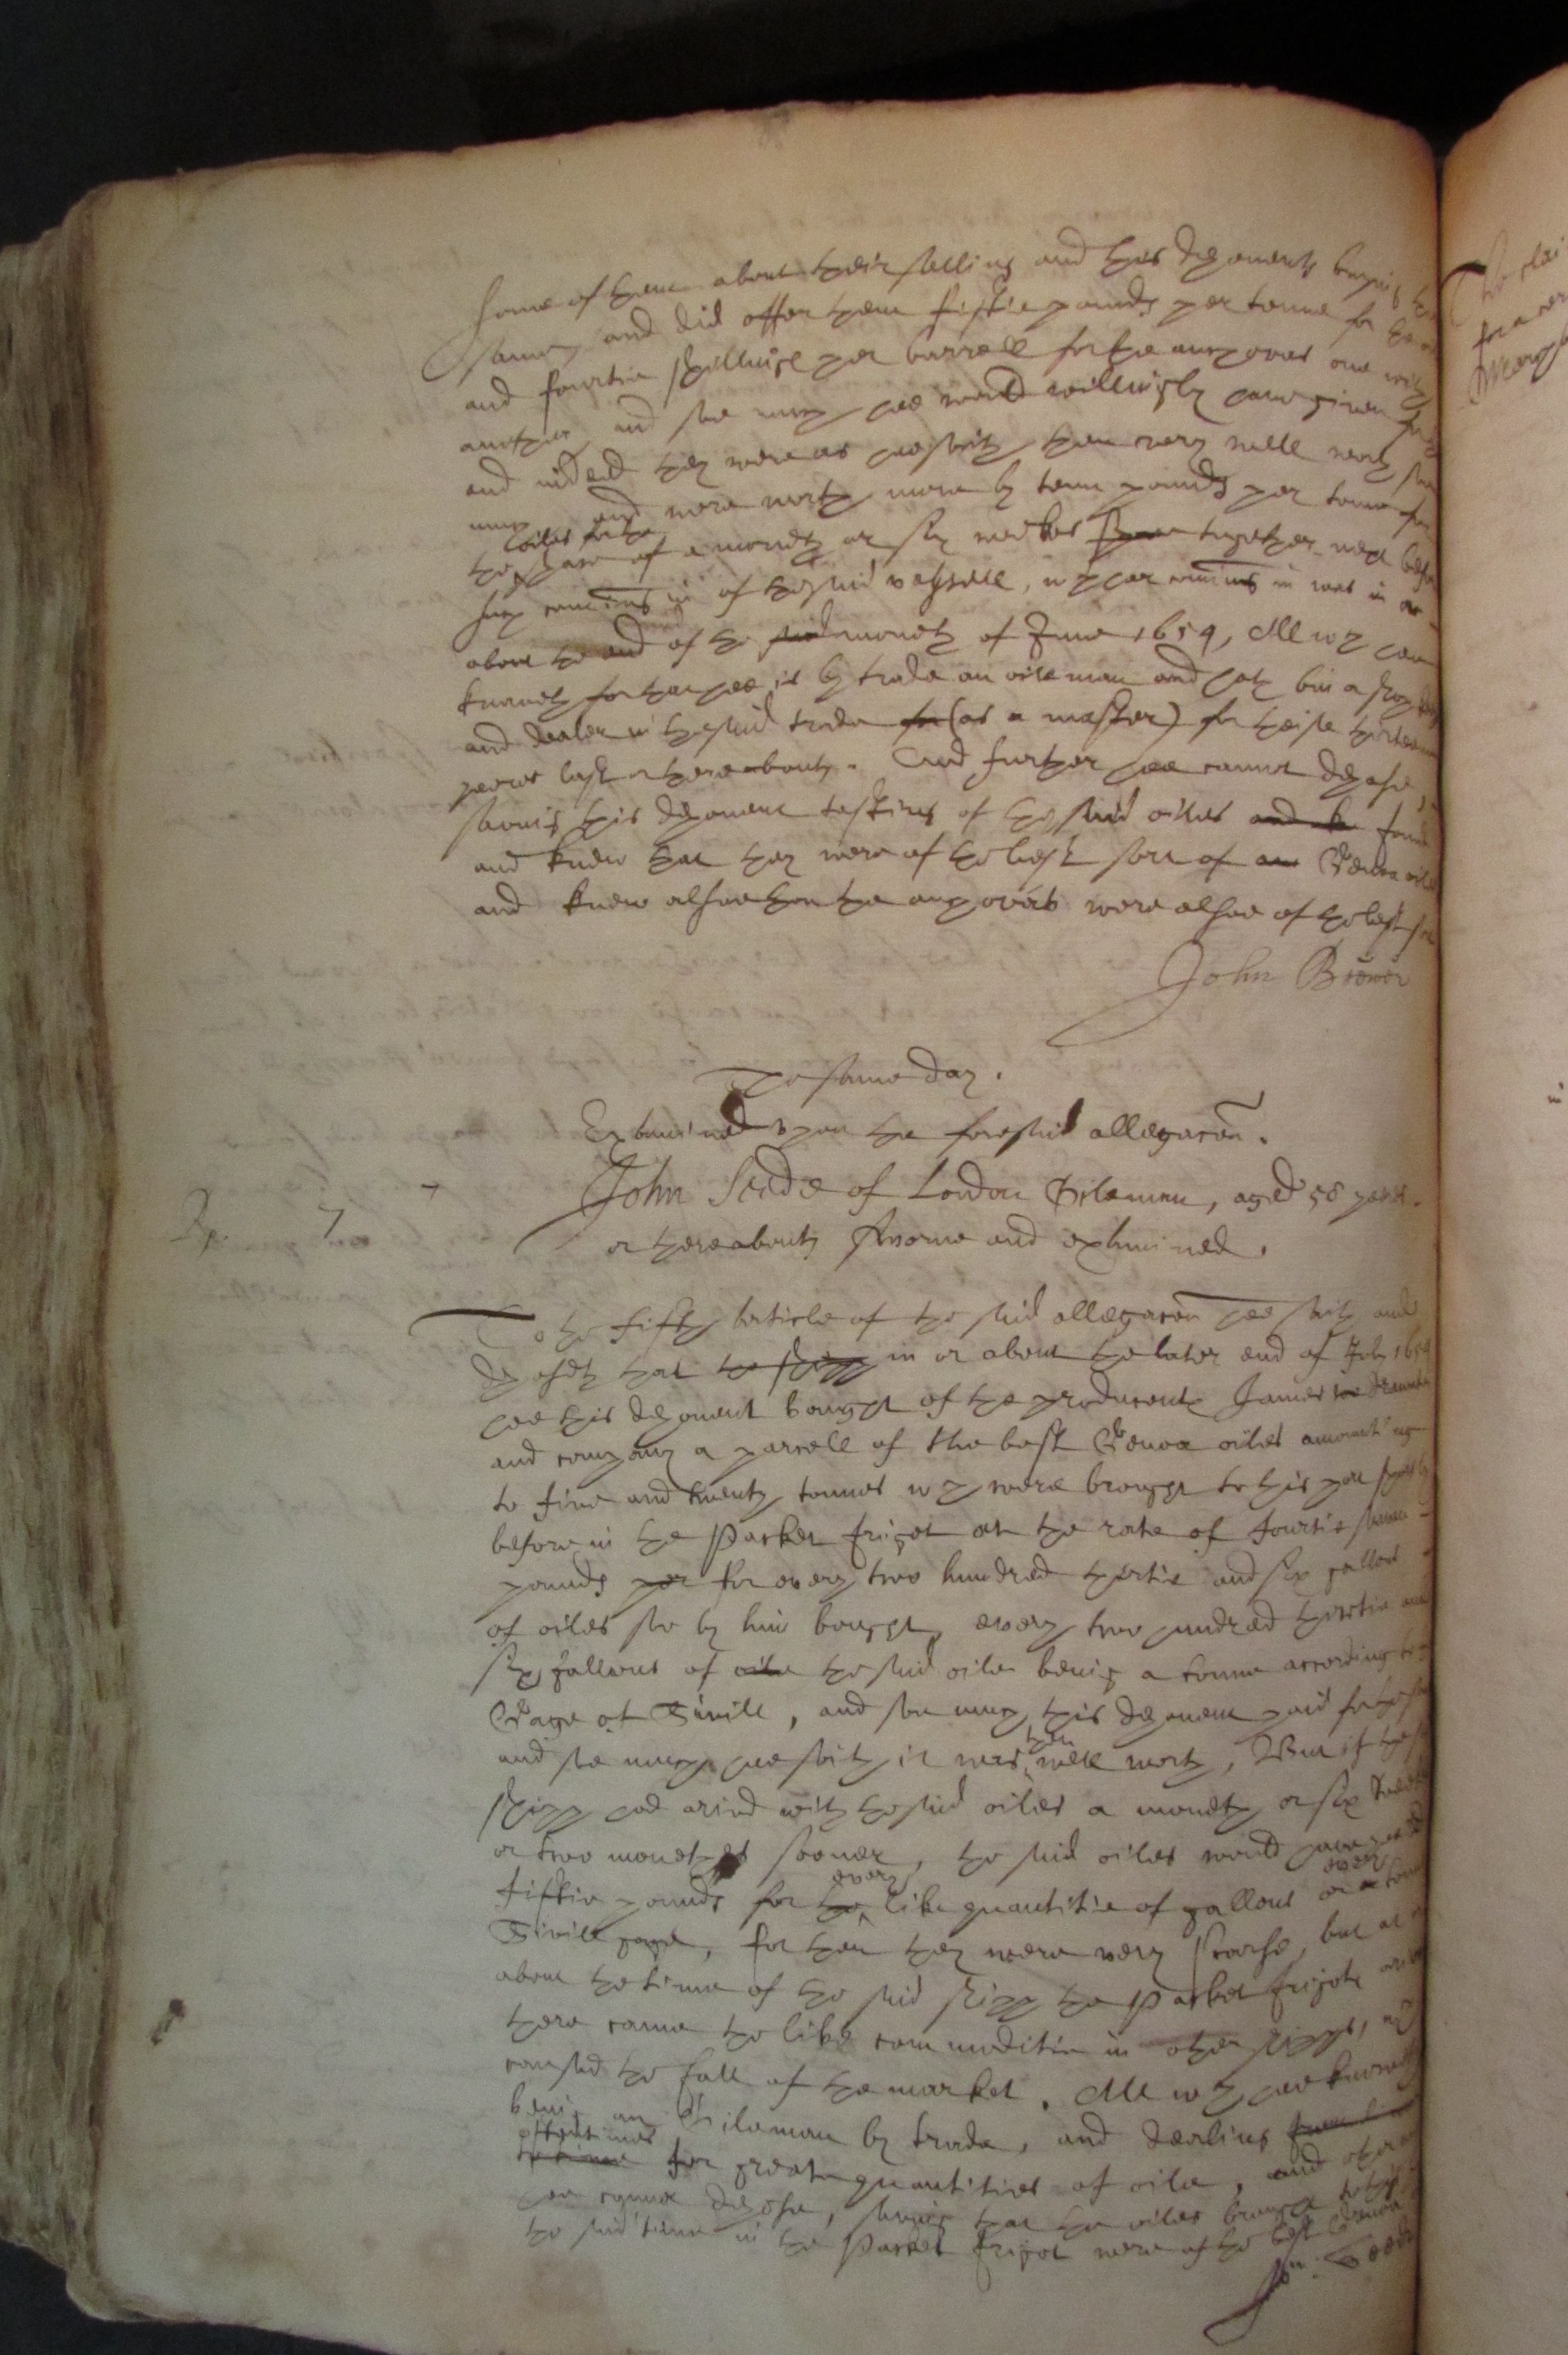 some of them about their selling and this deponents buying the
same, and did offer them fiftie pounds per tonne for the
and fourtie shillings per barrell for the anchoves one with
another, and soe much hee would willingly have given for
and indeed they were as hee saith then very well worth soe
much and were worth more by tenn pounds per tonne for
oiles for the
the space of a moneth or six weekes together next before
such comeing in of the said vessell, wch her comeing in was in or
about the end of the said moneth of June 1654, All wch hee
knoweth for that hee is by trade an oileman and hath bin a shop
and dealer in the said trade for (as a master) for theise thirteene
yeares last or thereabouts. And further hee cannot depose,
saving this deponent tasting of the said oiles and found
and knew that they were of the best sort of Genoa oiles
and knew alsoe that the anchoves were alsoe of the best sort
John Brewer
The same day.
Examined upon the foresaid allegacon.
John Seede of London Oileman, aged 58 yeares
or thereabouts sworne and examined.
7
To the fifth article of the said allegacon hee saith and
deposeth that the shipp in or about the later end of July 1654
hee this deponent bought of the producents James
and company a parcell of the best Genoa oiles amounting
to five and twenty tonnes wch were brought to this port
before in the Parket frigot at the rate of fourtie seaven
pounds per for every two hundred thirtie and six gallons
of oiles soe by him bought, every two hundred thirtie and
six gallons of oile the said oile being a tonne according to
Gage of Sivill, and soe much this deponent paid for the same
and soe much hee saith it was then well worth, But if the
shipp had arived with the said oiles a moneth or six weekes
or two monethes sooner, the said oiles would have
fiftie pounds for the every like quantitie of gallons or
Sivill gage, for then they were very scarse, but at or
about the time of the said shipp the Parket frigots
there came the like commoditie in other shipps, wch
caused the fall of the market. All wch hee knoweth
being an Oileman by trade, and dealing
oftentimes
for greate quantities of oile, and otherwise
hee cannot depose, saving that the oiles brought
the said time in the Parket frigot were of the best Genoa
Jn: Seede